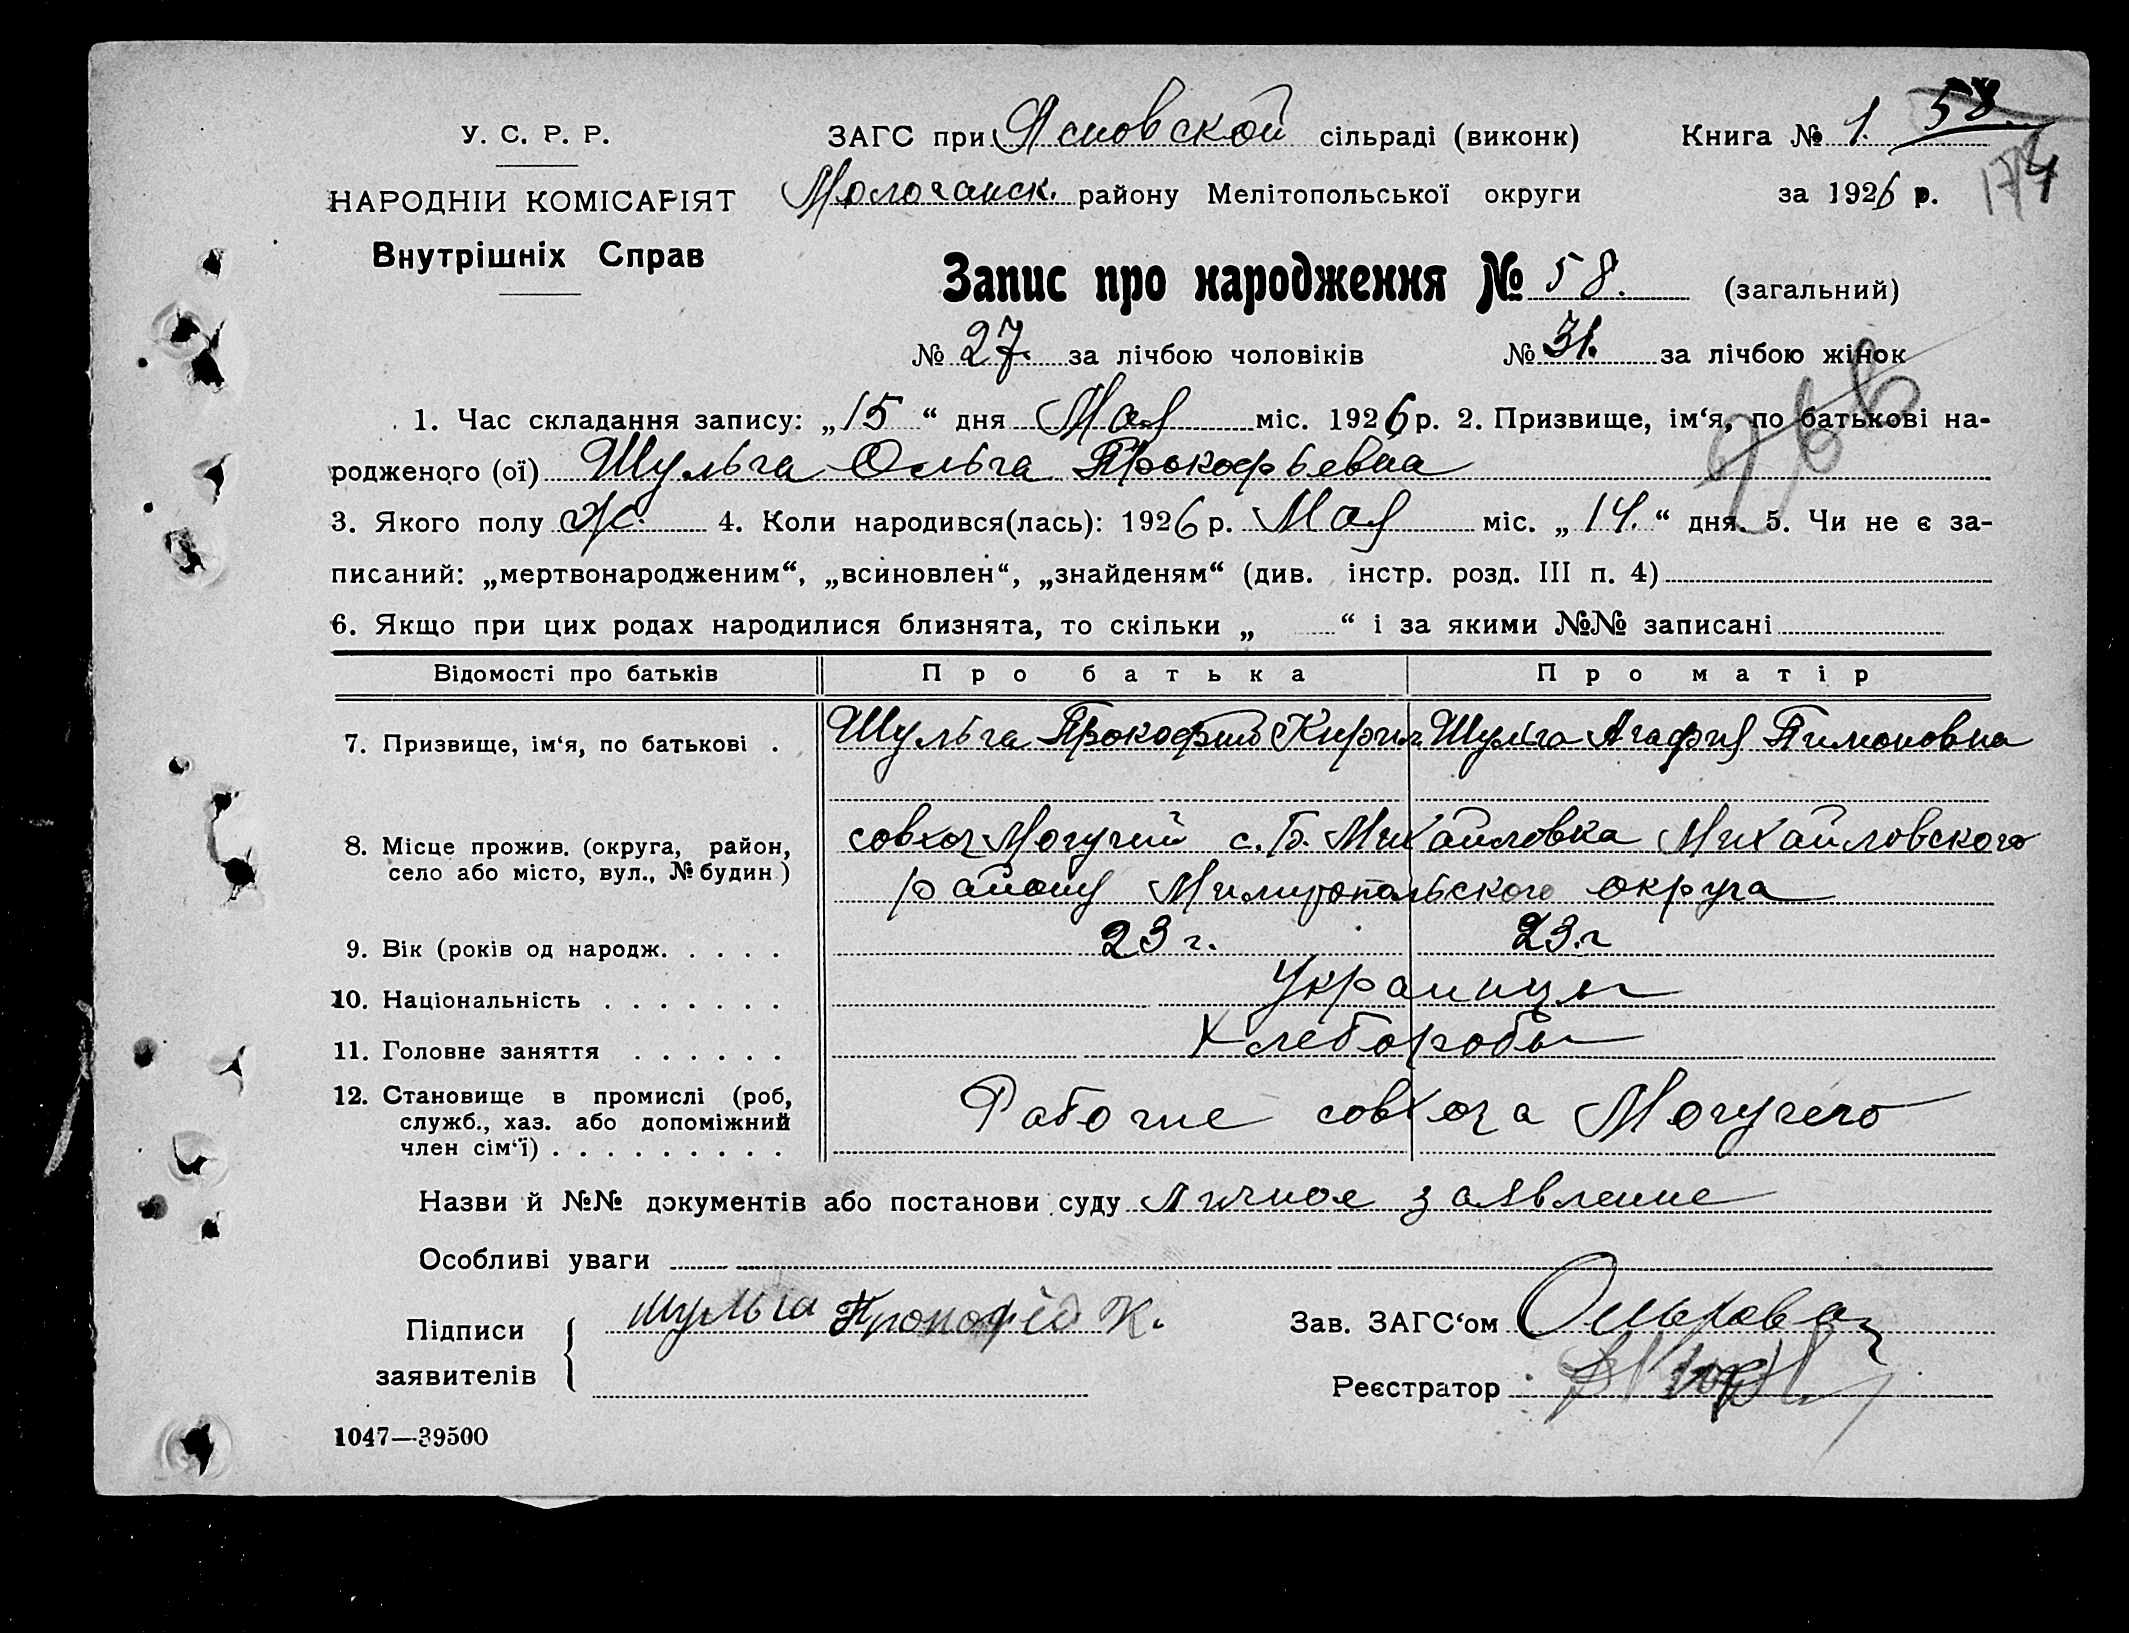 У. С. Р. Р.
НАРОДНІЙ КОМІСАРІЯТ
Внутрішніх Справ
ЗАГС при Ясновской сільраді (виконк)
Молочанск. району Мелітопольської округи
Книга № 1. 58
за 1926 р. 174
Запис про народження № 58. (загальний)
№ 27. за лічбою чоловіків № 31. за лічбою жінок
1. Час складання запису: „15“ дня Мая міс. 1926 р. 2. Призвище, ім‘я, по батькові на-
родженого (ої) Шульга Ольга Прокофьевна
3. Якого полу Ж. 4. Коли народився(лась): 1926 р. Мая міс. „14.“ дня. 5. Чи не є за-
писаний: „мертвонародженим“, „всиновлен“, „знайденям“ (див. інстр. розд. III п. 4)
6. Якщо при цих родах народилися близнята, то скільки „ “ і за якими №№ записані
Відомості про батьків Про батька Про матір
7. Призвище, ім‘я, по батькові . Шульга Прокофий Кирил Шульга Агафия Тимоновна
8. Місце прожив. (округа, район, село або місто, вул., № будин) совхоз Могучий с. Б. Михайловка Михайловского
району Милитопольского округа
9. Вік (років од народж. . . . . 23 г. 23.г
10. Національність . . . . . . . Украинцы
11. Головне заняття . . . . . . Хлеборобы
12. Становище в промислі (роб, служб., хаз. або допоміжний член сім‘ї) . . . . . . . . . Рабочие совхоза Могучего
Назви й №№ документів або постанови суду Личное заявление
Особливі уваги
Підписи заявителів Шульга Прокофій К.
Зав. ЗАГС‘ом
Реєстратор
1047—39500